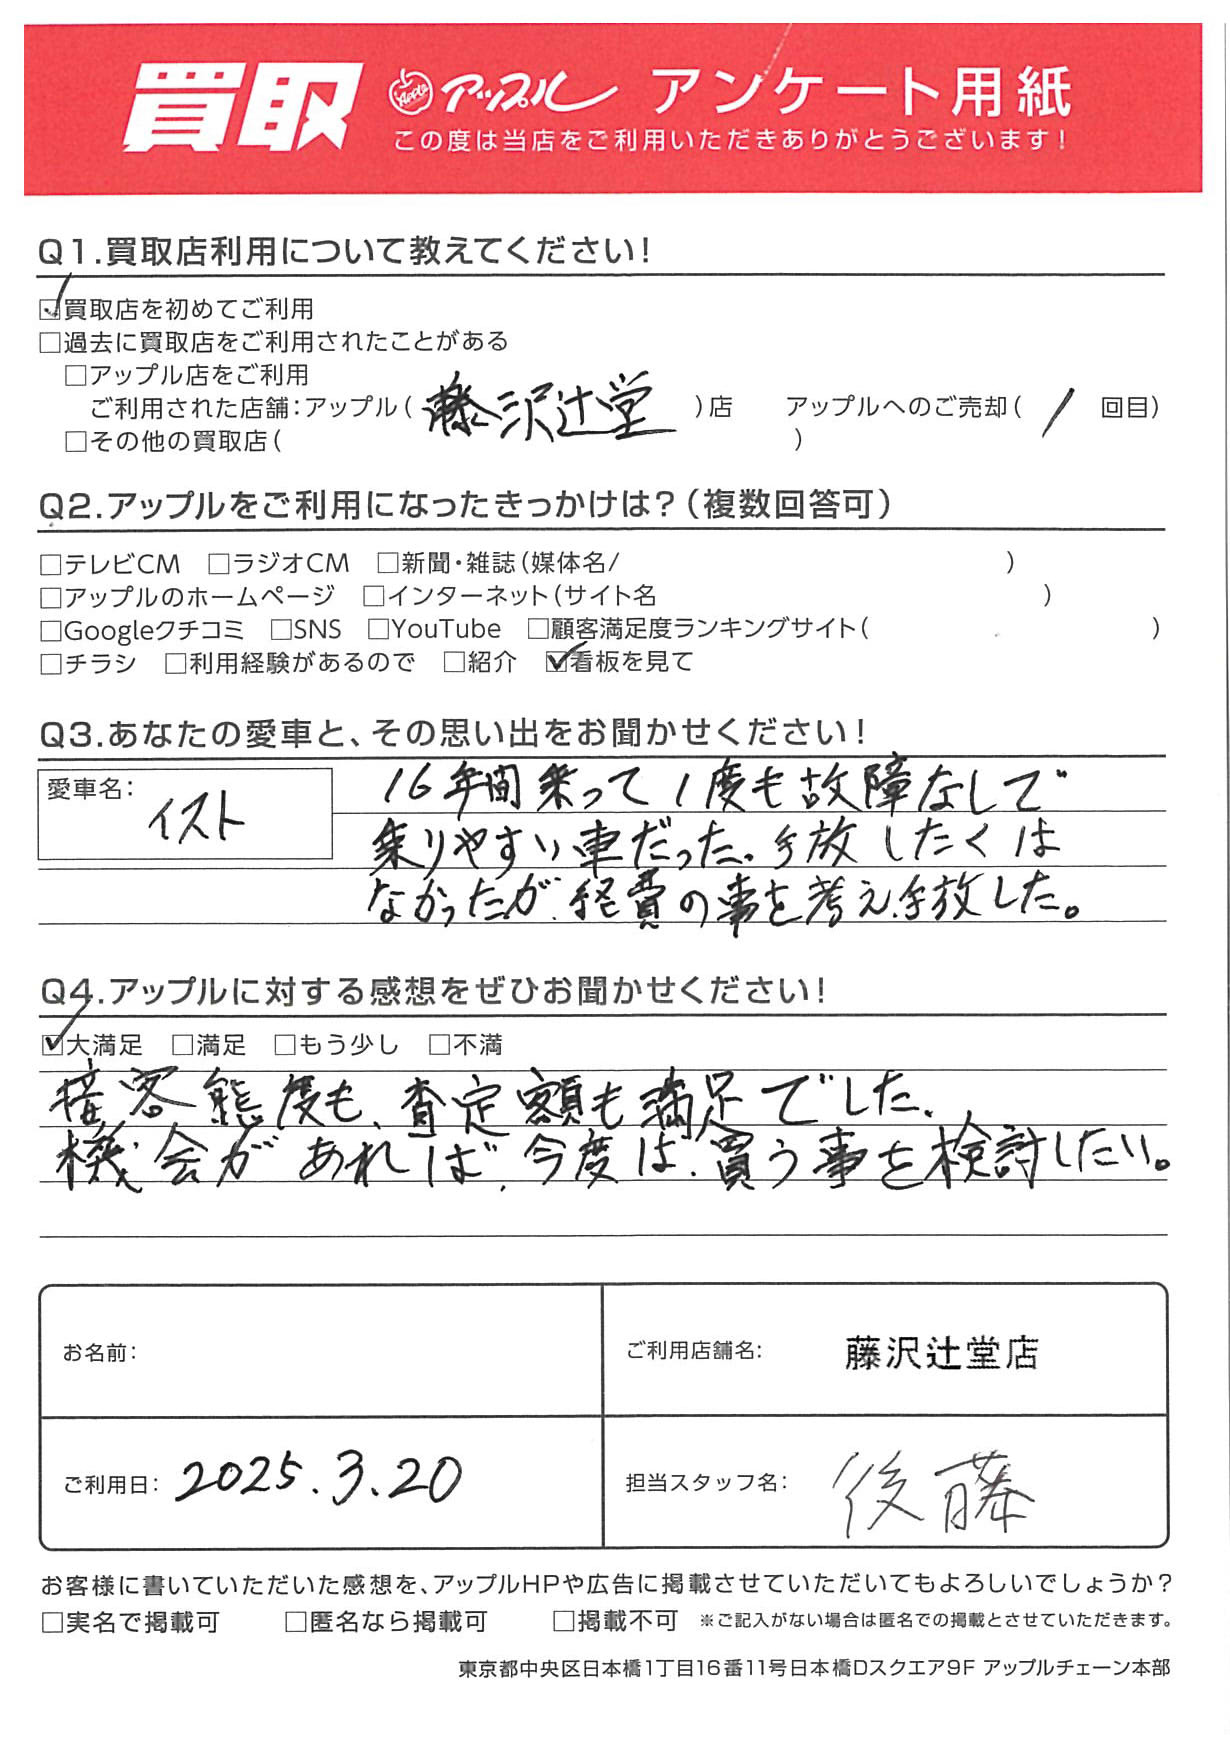 買取 Apple アップル アンケート用紙
この度は当店をご利用いただきありがとうございます!
Q1.買取店利用について教えてください!
☑買取店を初めてご利用
□過去に買取店をご利用されたことがある
□アップル店をご利用
ご利用された店舗:アップル(藤沢辻堂)店 アップルへのご売却(1回目)
□その他の買取店( )
Q2.アップルをご利用になったきっかけは?(複数回答可)
□テレビCM □ラジオCM □新聞・雑誌(媒体名/ )
□アップルのホームページ □インターネット(サイト名 )
□Googleクチコミ □SNS □YouTube □顧客満足度ランキングサイト( )
□チラシ □利用経験があるので □紹介 ☑看板を見て
Q3.あなたの愛車と、その思い出をお聞かせください!
愛車名: イスト
16年間乗って1度も故障なしで
乗りやすい車だった、手放したくは
なかったが、経費の事を考え、手放した。
Q4.アップルに対する感想をぜひお聞かせください!
☑大満足 □満足 □もう少し □不満
接客態度も、査定額も満足でした、
機会があれば、今度は、買う事を検討したい。
お名前:
ご利用店舗名: 藤沢辻堂店
ご利用日: 2025.3.20
担当スタッフ名: 後藤
お客様に書いていただいた感想を、アップルHPや広告に掲載させていただいてもよろしいでしょうか?
□実名で掲載可 □匿名なら掲載可 □掲載不可 ※ご記入がない場合は匿名での掲載とさせていただきます。
東京都中央区日本橋1丁目16番11号日本橋Dスクエア9F アップルチェーン本部